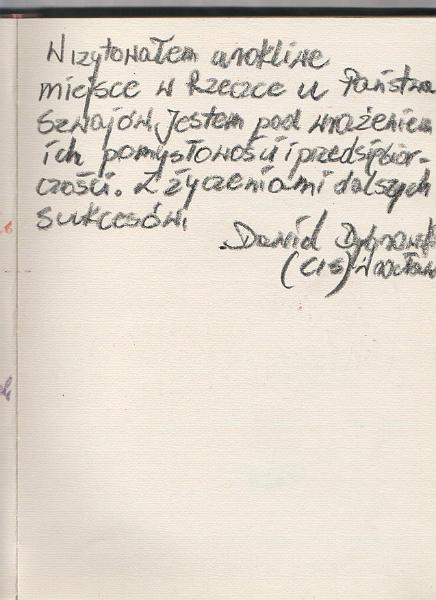 Wizytowałem urokliwe
miejsce w Rzeczce u Państwa
Szwajów. Jestem pod wrażeniem
ich pomysłowości i przedsiębior-
czości. Z życzeniami dalszych
sukcesów.
Dawid
(CIS) Wrocław